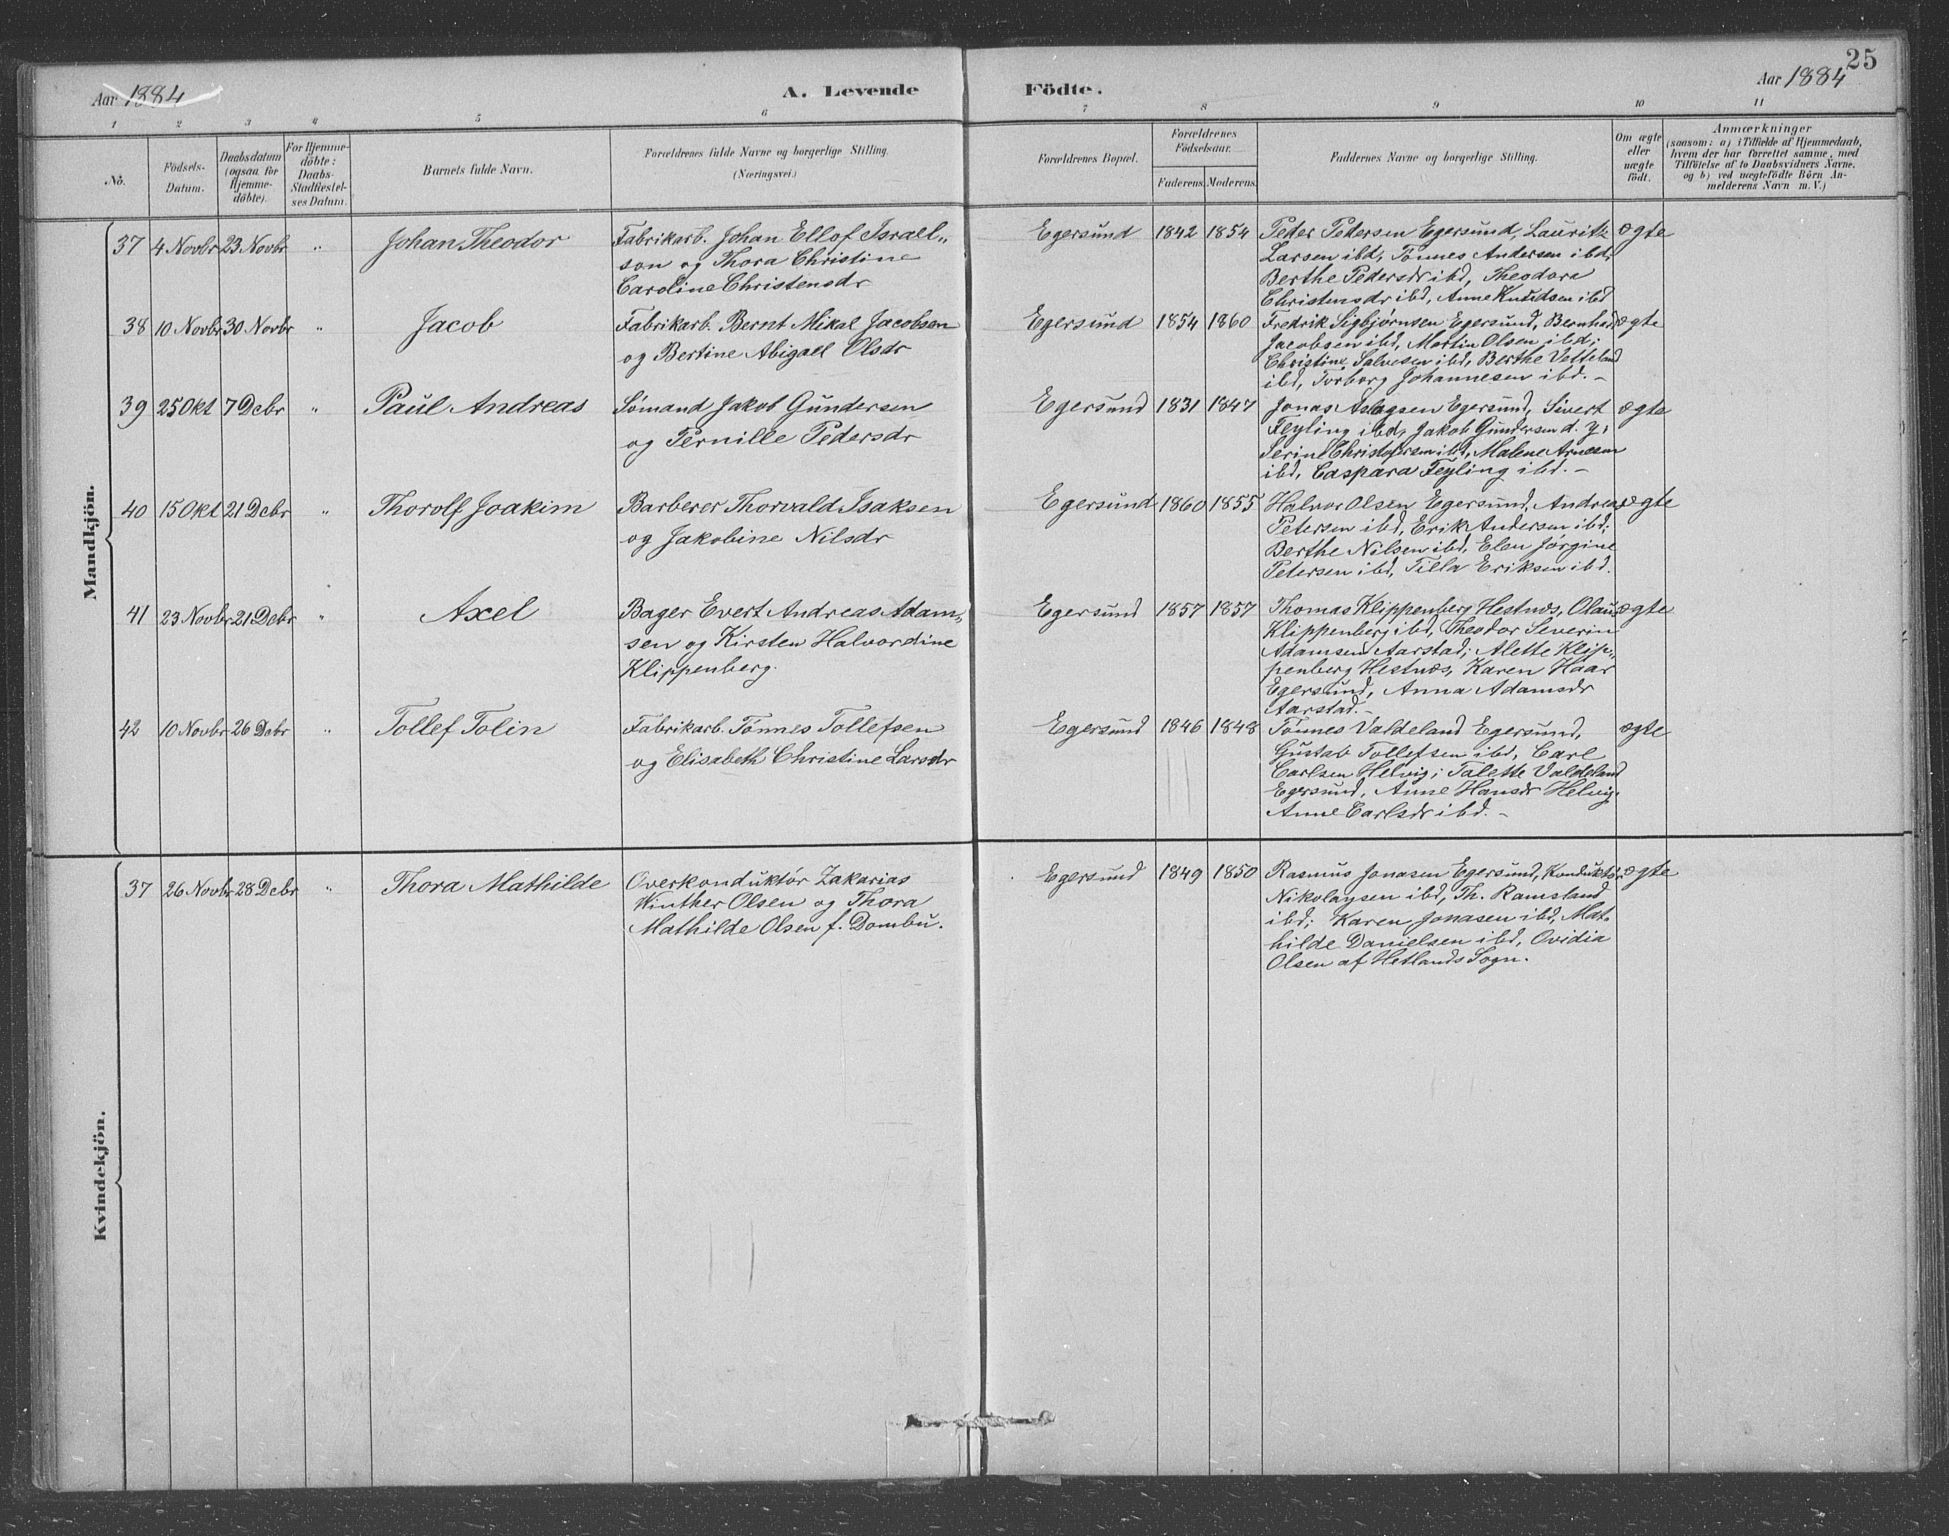 25
Aar 1884 A. Levende Födte. Aar 1884
1 2 3 4 5 6 7 8 9 10 11
No.
Födsels-
Datum.
Daabsdatum
(ogsaa for
Hjemme-
döbte).
For Hjemme-
döbte:
Daabs-
Stadfæstel-
ses Datum.
Barnets fulde Navn.
Forældrenes fulde Navne og borgerlige Stilling.
(Næringsvei.)
Forældrenes Bopæl.
Forældrenes
Födselsaar.
Faderens. Moderens.
Faddernes Navne og borgerlige Stilling.
Om ægte
eller
uægte
födt.
Anmærkninger
(saasom: a) i Tilfælde af Hjemmedaab,
hvem der har forrettet samme, med
Tilföielse af to Daabsvidners Navne,
og b) ved uægtefödte Börn An-
melderens Navn m. V.)
Mandkjön.
37 4 Novbr 23 Novbr " Johan Theodor
Fabrikarb. Johan Ellof Israel„
son og Thora Christine
Caroline Christensdr
Egersund 1842 1854
Peder Pedersen Egersund, Lauritz
Larsen ibd, Tønnes Andersen ibd;
Berthe Pedersdr ibd, Theodora
Christensdr ibd, Anne Knudsen ibd
ægte
38 10 Novbr 30 Novbr " Jacob
Fabrikarb. Bernt Mikal Jacobsen
og Bertine Abigael Olsdr
Egersund 1854 1860
Fredrik Sigbjørnsen Egersund, Bernhard
Jacobsen ibd, Martin Olsen ibd;
Christine Salvesen ibd, Berthe Vetteland
ibd, Torborg Johannesen ibd. -
ægte
39 25 Okt 7 Debr " Paul Andreas
Sømand Jakob Gundersen
og Pernille Pedersdr
Egersund 1831 1847
Jonas Aslagsen Egersund, Sivert
Feyling ibd, Jakob Gundersen d. y;
Serine Christofersen ibd, Malene Arnesen
ibd, Caspara Feyling ibd. -
ægte
40 15 Okt 21 Debr " Thorolf Joakim
Barberer Thorvald Isaksen
og Jakobine Nilsdr
Egersund 1860 1855
Halvor Olsen Egersund, Andreas
Petersen ibd, Erik Andersen ibd;
Berthe Nilsen ibd, Elen Jørgine
Petersen ibd, Tilla Eriksen ibd.
ægte
41 23 Novbr 21 Debr " Axel
Bager Evert Andreas Adam„
sen og Kirsten Halvordine
Klippenberg.
Egersund 1857 1857
Thomas Klippenberg Hestnæs, Olaus
Klippenberg ibd, Theodor Severin
Adamsen Aarstad; Alette Klip„
penberg Hestnæs, Karen Haar
Egersund, Anna Adamsdr
Aarstad. -
ægte
42 10 Novbr 26 Debr " Tollef Tolin
Fabrikarb. Tønnes Tollefsen
og Elisabeth Christine Larsdr
Egersund 1846 1848
Tønnes Valdeland Egersund,
Gustab Tollefsen ibd, Carl
Carlsen Helvig; Talette Valdeland
Egersund, Anne Hansdr Helvig,
Anne Carlsdr ibd. -
ægte
Kvindekjön.
37 26 Novbr 28 Debr " Thora Mathilde
Overkonduktør Zakarias
Winther Olsen og Thora
Mathilde Olsen f. Dombu.
Egersund 1849 1850
Rasmus Jonasen Egersund, Konduktør
Nikolaysen ibd, Th. Ramsland
ibd; Karen Jonasen ibd, Mat-
hilde Danielsen ibd, Ovidia
Olsen af Hetlands Sogn.
ægte